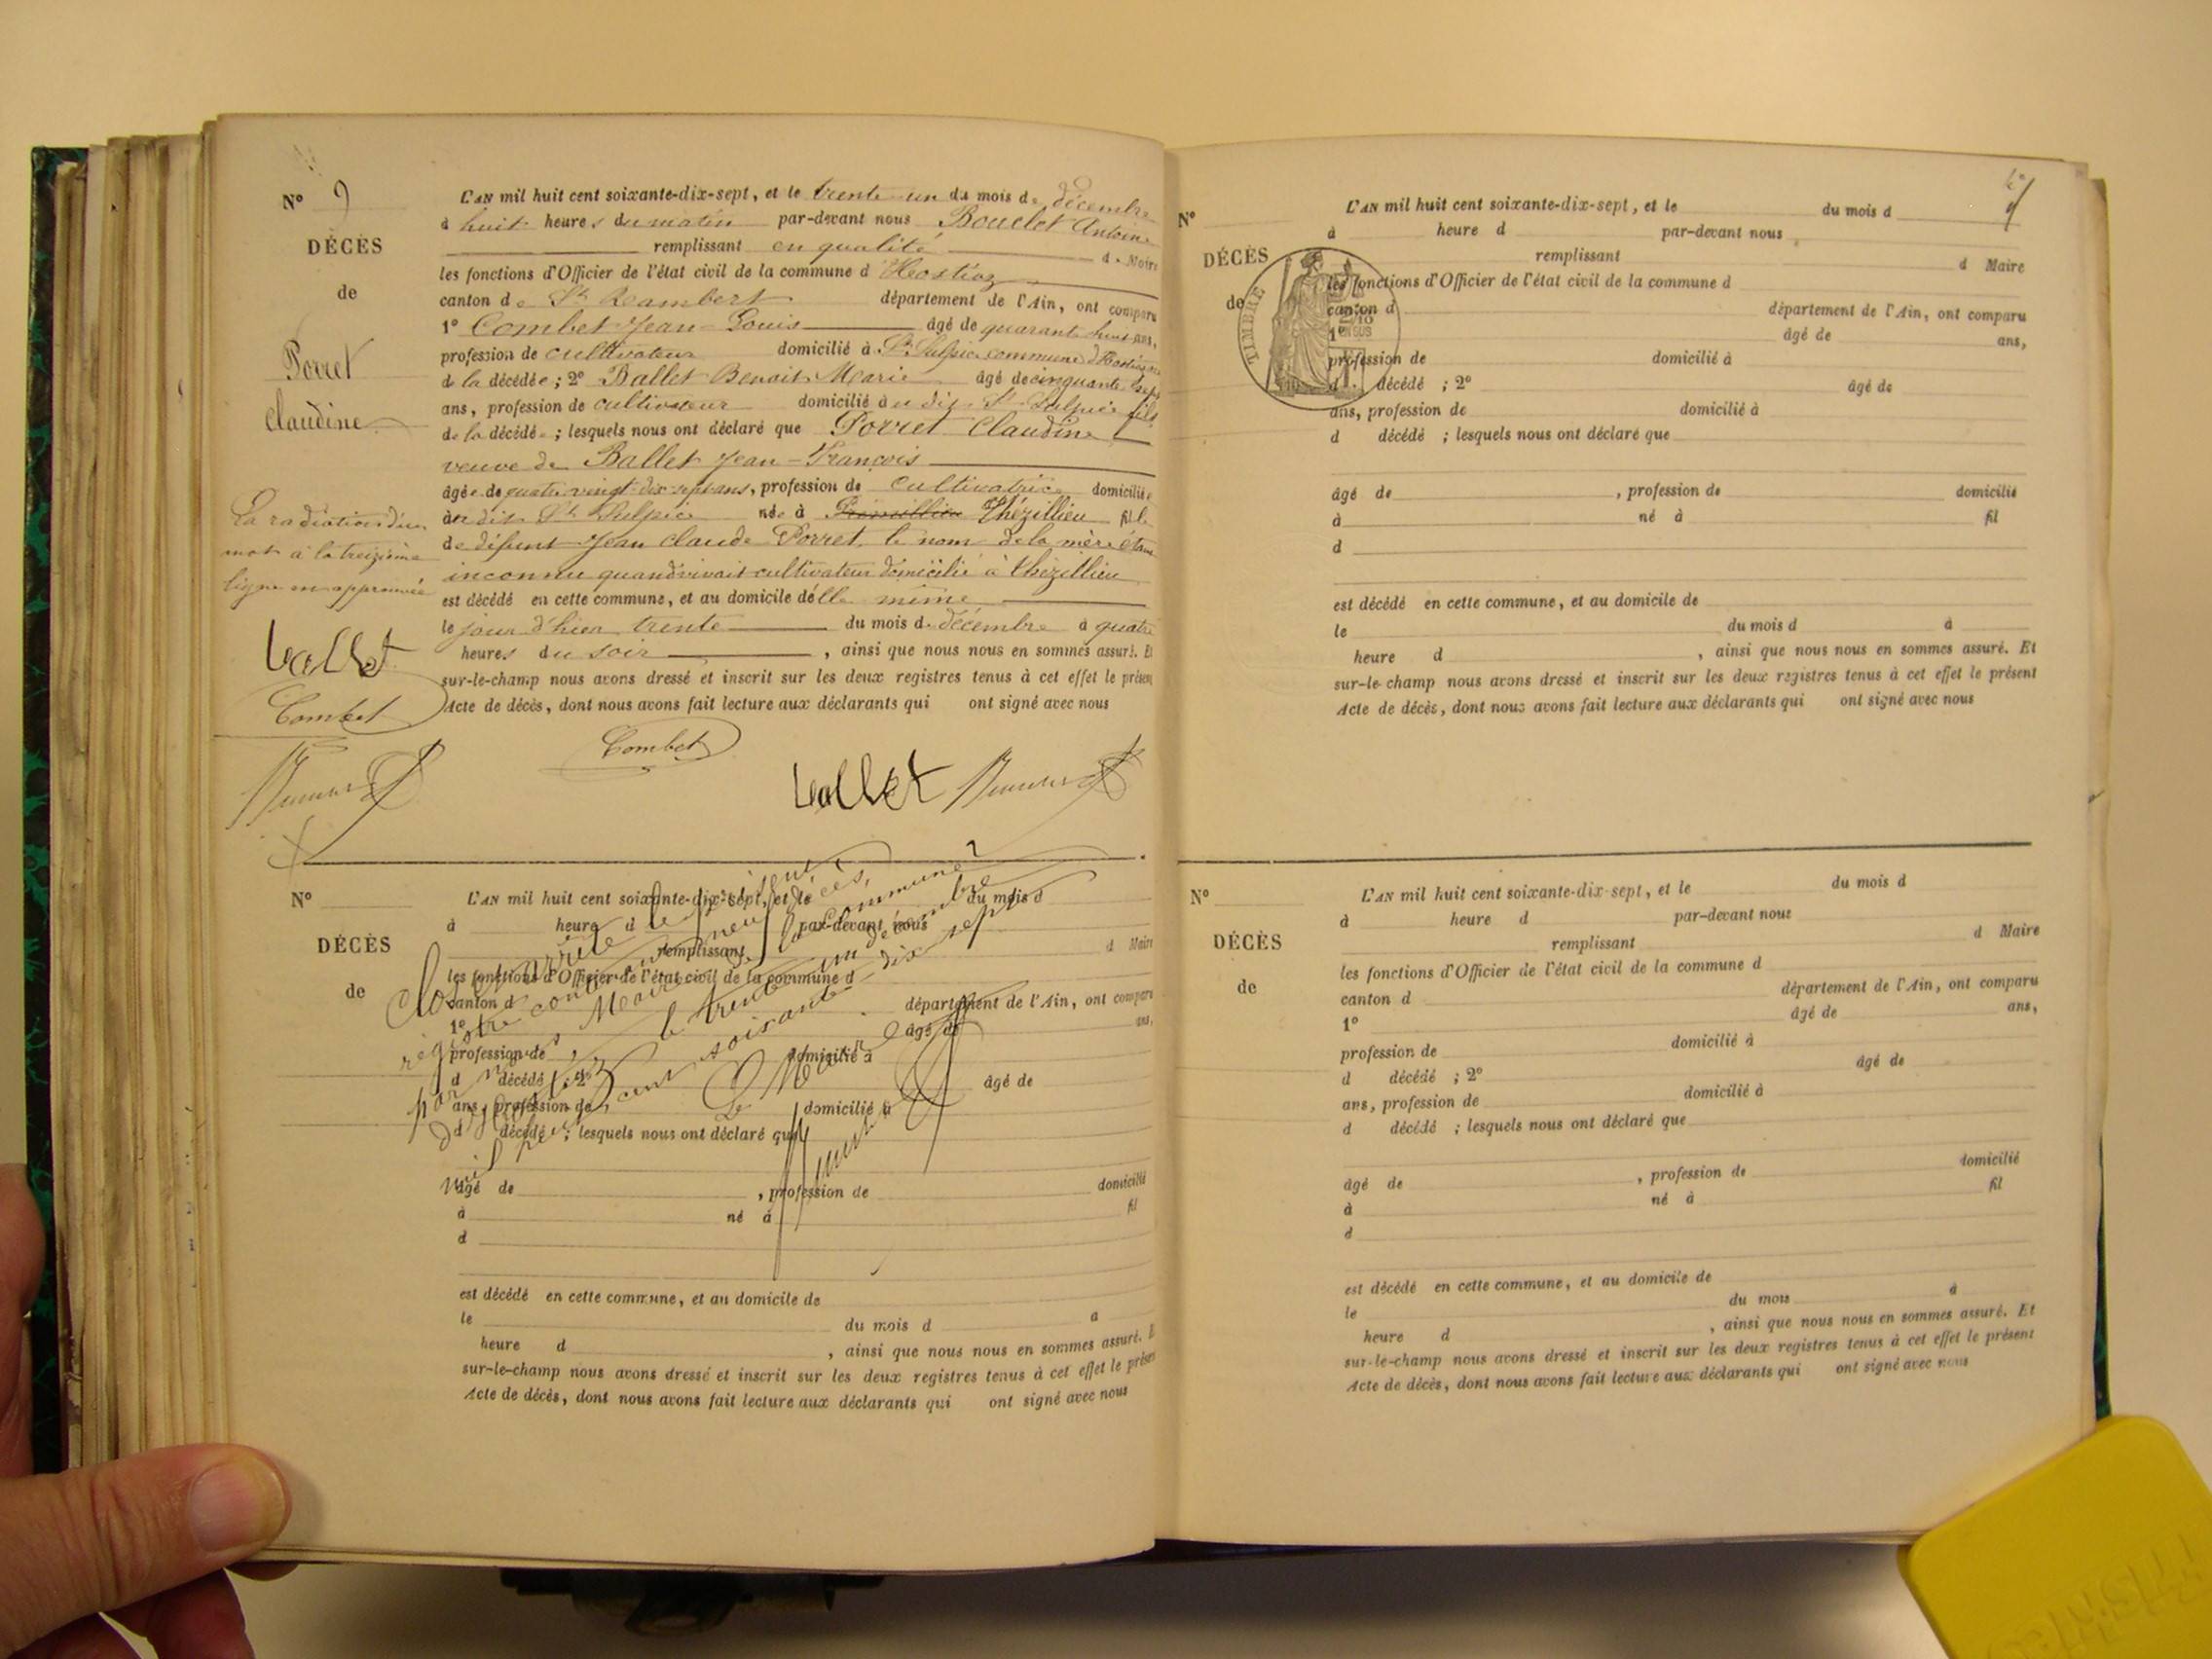 N° 9
DÉCÈS
de
Porret
Claudine
La radiation d'un
mot à la treizième
ligne en approuvée
Ballet
Combet
L'AN mil huit cent soixante-dix-sept, et le trente un du mois de décembre
à huit heures du matin par-devant nous Antoine
remplissant en qualité de Maire
les fonctions d'Officier de l'état civil de la commune d'Hostiaz
canton de St Rambert département de l'Ain, ont comparu
1° Combet Jean-Louis âgé de quarante huit ans,
profession de cultivateur domicilié à St Sulpice commune d'Hostiaz
de la décédée ; 2° Ballet Benoit Marie âgé de cinquante sept
ans, profession de cultivateur domicilié au dit St Sulpice fils
de la décédée ; lesquels nous ont déclaré que Porret Claudine
veuve de Ballet Jean-François
âgée de quatre vingt dix sept ans, profession de cultivatrice domiciliée
au dit St Sulpice née à Thézillieu fille
de défunt Jean Claude Porret le nom de la mère étant
inconnu quand vivait cultivateur domicilié à Thézillieu
est décédé en cette commune, et au domicile d'elle même
le jour d'hier trente du mois de décembre à quatre
heures du soir , ainsi que nous nous en sommes assuré. Et
sur-le-champ nous avons dressé et inscrit sur les deux registres tenus à cet effet le présent
Acte de décès, dont nous avons fait lecture aux déclarants qui ont signé avec nous
Combet
Ballet
N°
DÉCÈS
de
L'AN mil huit cent soixante-dix-sept, et le du mois d
à heure d par-devant nous
remplissant d Maire
les fonctions d'Officier de l'état civil de la commune d
canton d département de l'Ain, ont comparu
1° âgé de ans,
profession de domicilié à
d décédé ; 2° âgé de
ans, profession de domicilié à
d décédé ; lesquels nous ont déclaré que
âgé de , profession de domicilié
à né à fil
d
est décédé en cette commune, et au domicile de
le du mois d à
heure d , ainsi que nous nous en sommes assuré. Et
sur-le-champ nous avons dressé et inscrit sur les deux registres tenus à cet effet le présent
Acte de décès, dont nous avons fait lecture aux déclarants qui ont signé avec nous
Clos et arrêté le présent
registre contenant neuf décès,
par nous Maire de la commune
d'Hostiaz le trente un décembre
mil huit cent soixante dix sept
Le Maire
N°
DÉCÈS
de
TIMBRE
L'AN mil huit cent soixante-dix-sept, et le du mois d
à heure d par-devant nous
remplissant d Maire
les fonctions d'Officier de l'état civil de la commune d
canton d département de l'Ain, ont comparu
1° âgé de ans,
profession de domicilié à
d décédé ; 2° âgé de
ans, profession de domicilié à
d décédé ; lesquels nous ont déclaré que
âgé de , profession de domicilié
à né à fil
d
est décédé en cette commune, et au domicile de
le du mois d à
heure d , ainsi que nous nous en sommes assuré. Et
sur-le-champ nous avons dressé et inscrit sur les deux registres tenus à cet effet le présent
Acte de décès, dont nous avons fait lecture aux déclarants qui ont signé avec nous
N°
DÉCÈS
de
L'AN mil huit cent soixante-dix-sept, et le du mois d
à heure d par-devant nous
remplissant d Maire
les fonctions d'Officier de l'état civil de la commune d
canton d département de l'Ain, ont comparu
1° âgé de ans,
profession de domicilié à
d décédé ; 2° âgé de
ans, profession de domicilié à
d décédé ; lesquels nous ont déclaré que
âgé de , profession de domicilié
à né à fil
d
est décédé en cette commune, et au domicile de
le du mois à
heure d , ainsi que nous nous en sommes assuré. Et
sur-le-champ nous avons dressé et inscrit sur les deux registres tenus à cet effet le présent
Acte de décès, dont nous avons fait lecture aux déclarants qui ont signé avec nous